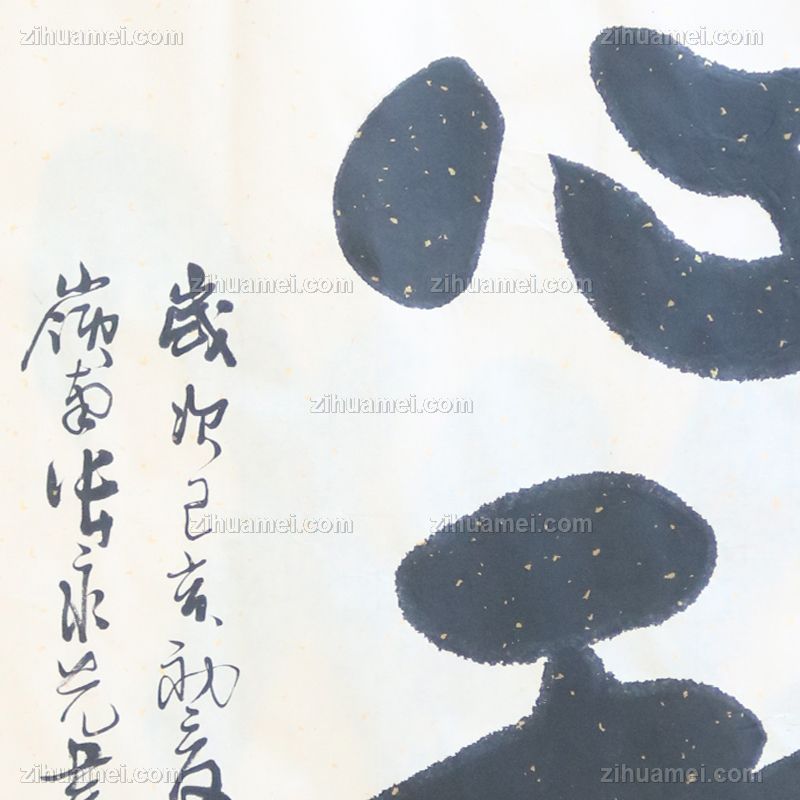 歲次己亥初夏
嶺南張永光書
zihuamei.com
zihuamei.com
zihuamei.com
zihuamei.com
zihuamei.com
zihuamei.com
zihuamei.com
zihuamei.com
zihuamei.com
zihuamei.com